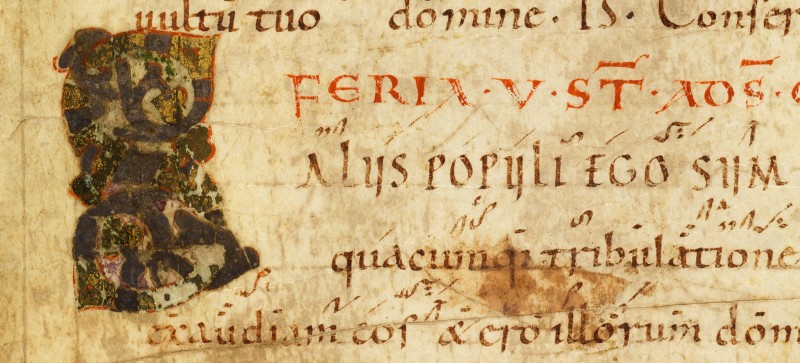 uultū tuo domine. IS. Conser
FERIA·V·ST̄·AD S̄·C
SALUS POPULI EGO SUM
quacumq; tribulatione
exaudiam eos & ero illorum dom